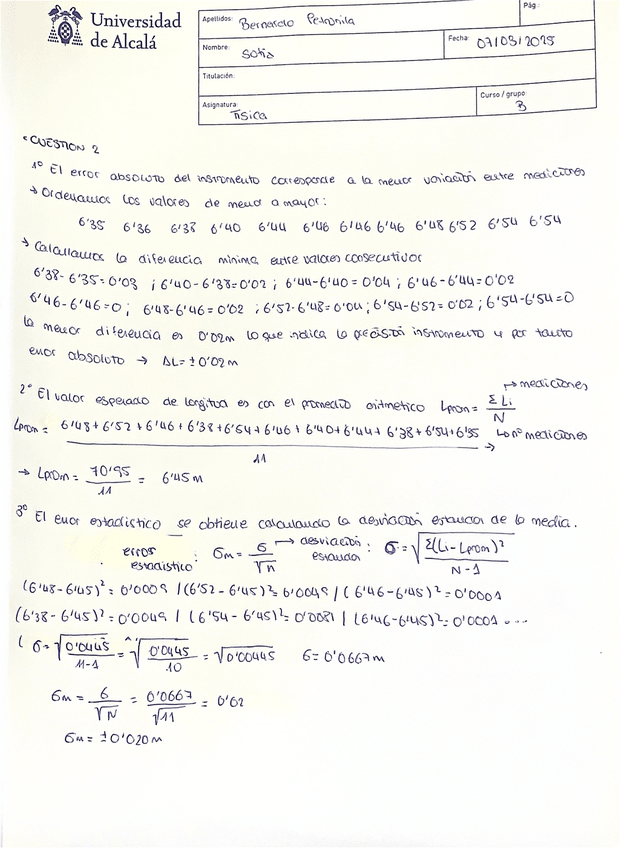 Universidad
de Alcalá
Apellidos: Bernardo Petronila
Pág.:
Nombre: Sofia
Fecha: 07/03/2025
Titulación:
Asignatura: Fisica
Curso / grupo: B
CUESTION 2
1º El error absoluto del instrumento corresponde a la menor variación entre mediciones
→ Ordenamos los valores de menor a mayor:
6'35 6'36 6'38 6'40 6'44 6'46 6'46 6'46 6'48 6'52 6'54 6'54
→ Calculamos la diferencia minima entre valores consecutivos
6'38-6'35=0'03 ; 6'40-6'38=0'02 ; 6'44-6'40=0'04 ; 6'46-6'44=0'02
6'46-6'46=0; 6'48-6'46=0'02 ; 6'52-6'48=0'04; 6'54-6'52=0'02; 6'54-6'54=0
la menor diferencia es 0'02m lo que indica la precisión instrumento y por tanto
error absoluto → ΔL=±0'02m
2º El valor esperado de longitud es con el promedio aritmetico Lprom = Σ Li / N → mediciones
Lprom = 6'48+6'52+6'46+6'38+6'54+6'46+6'40+6'44+6'38+6'54+6'35 / 11 → nº mediciones
→ Lprom = 70'95 / 11 = 6'45m
3º El error estadistico se obtiene calculando la desviación estandar de la media.
error estadistico: σm = σ / √N → desviación estandar: σ = √ Σ(Li - Lprom)² / N-1
(6'48-6'45)²=0'0009 / (6'52-6'45)²=0'0049 / (6'46-6'45)²=0'0001
(6'38-6'45)²=0'0049 / (6'54-6'45)²=0'0081 / (6'46-6'45)²=0'0001 ....
σ = √ 0'0445 / 11-1 = √ 0'0445 / 10 = √0'00445 σ=0'0667m
σm = σ / √N = 0'0667 / √11 = 0'02
σm = ±0'020m